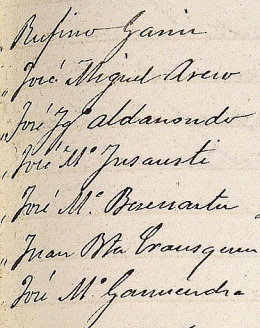 Rufino Garin
" José Miguel Arcio
" José Jgº aldanondo
" José Mª Insausti
" José Mª Berenartu
" Juan Bta Erausquin
" José Mª Garmendia